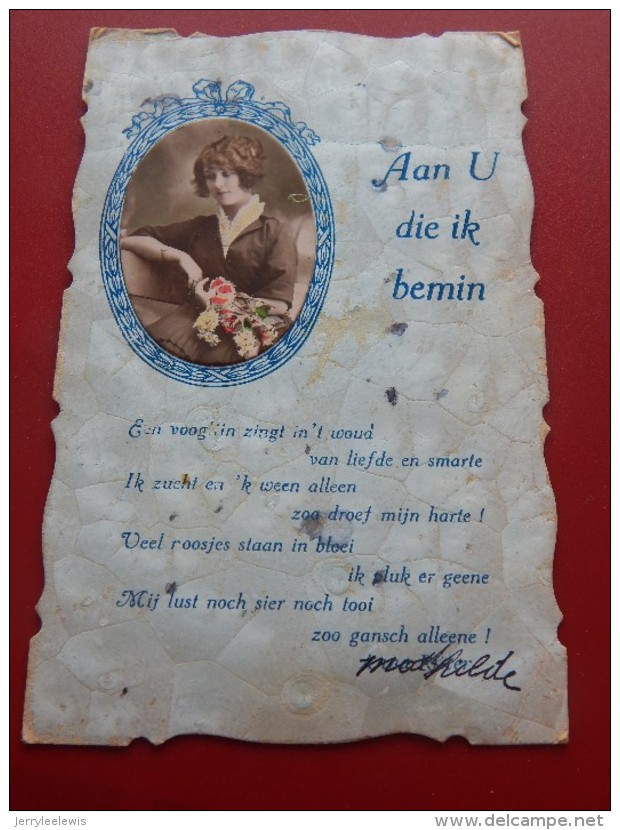 Aan U
die ik
bemin
Een vooglijn zingt in 't woud
van liefde en smarte
Ik zucht en 'k ween alleen
zoo droef mijn harte !
Veel roosjes staan in bloei
ik pluk er geene
Mij lust noch sier noch tooi
zoo gansch alleene !
mathilde
jerryleelewis
www.delcampe.net